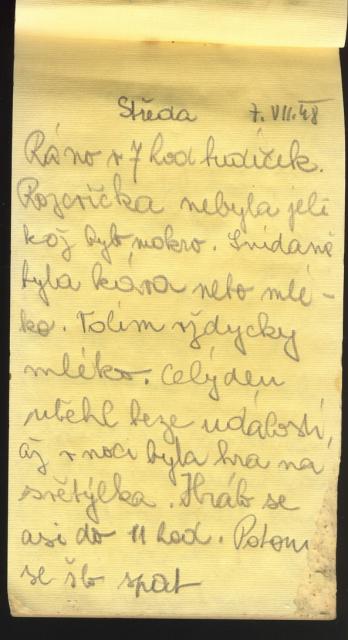 Středa 7. VII. 48
Ráno v 7 hod budíček.
Rozcvička nebyla jeli
kož bylo mokro. Snídaně
byla káva nebo mlé-
ko. Volím vždycky
mléko. Celý den
utekl beze událostí,
až v noci byla hra na
světýlka. Hrálo se
asi do 11 hod. Potom
se šlo spat